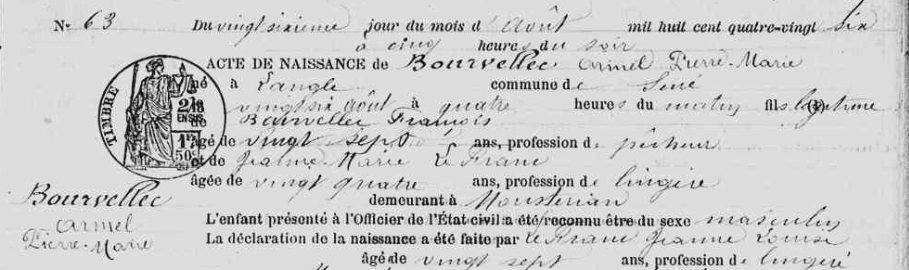 N° 63 Du vingt sixieme jour du mois d'Août mil huit cent quatre-vingt six
à cinq heures du soir
ACTE DE NAISSANCE de Bourvellec Armel Pierre-Marie
né à Langle commune de Séné
vingt six Août à quatre heures du matin fils légitime
de Bourvellec François
âgé de vingt sept ans, profession de pêcheur
et de Jeanne-Marie Le Franc
âgée de vingt quatre ans, profession de lingère
demeurant à Mousterian
L'enfant présenté à l'Officier de l'État civil a été reconnu être du sexe masculin
La déclaration de la naissance a été faite par Le Franc Jeanne Louise
âgé de vingt sept ans, profession de lingère
TIMBRE
Bourvellec
Armel
Pierre-Marie